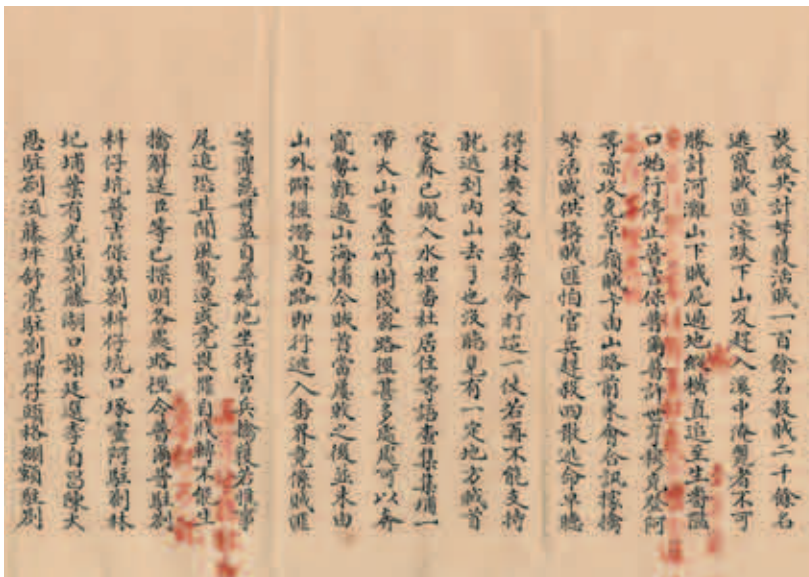 焚燬共計拏獲活賊一百餘名殺賊二千餘名
逃竄賊匪滾跌下山及趕入溪中淹斃者不可
勝計河灘山下賊屍遍地縱橫直追至生番隘
口始行停止普吉保普爾普許世亨穆克登阿
等亦攻克草嶺賊卡由山路前來會合訊據擒
拏活賊供稱賊匪怕官兵趕殺四散逃命早聽
得林爽文說要拚命打這一仗若再不能支持
就逃到內山去了也沒聽見有一定地方賊首
家眷已搬入水裡番社居住等語查集集埔一
帶大山重疊竹樹茂密路徑甚多處處可以奔
竄勢難遍山海捕今賊首當屢敗之後並未由
山外僻徑潛赴南路即行逃入番界竟係賊匪
等罪惡貫盈自尋絕地坐待官兵擒獲若惟事
尾追恐其聞風驚逸或竟畏罪自戕轉不能生
擒解送臣等已探明各處路徑令普爾普駐劄
科仔坑普吉保駐劄科仔坑口琢靈阿駐劄林
圯埔葉有光駐劄藤湖口謝廷選李自昌陳大
恩駐劄流藤坪舒亮駐劄歸仔頭格繃額駐劄